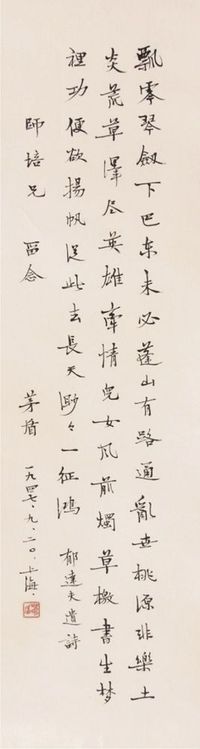 飄零琴劍下巴东未必蓬山有路通亂世桃源非樂土
炎荒草澤尽英雄牽情兒女風前燭草檄書生梦
裡功便欲揚帆從此去長天渺々一征鴻 郁達夫遺詩
師培兄 畄念
茅盾 一九四七、九、二〇、上海、